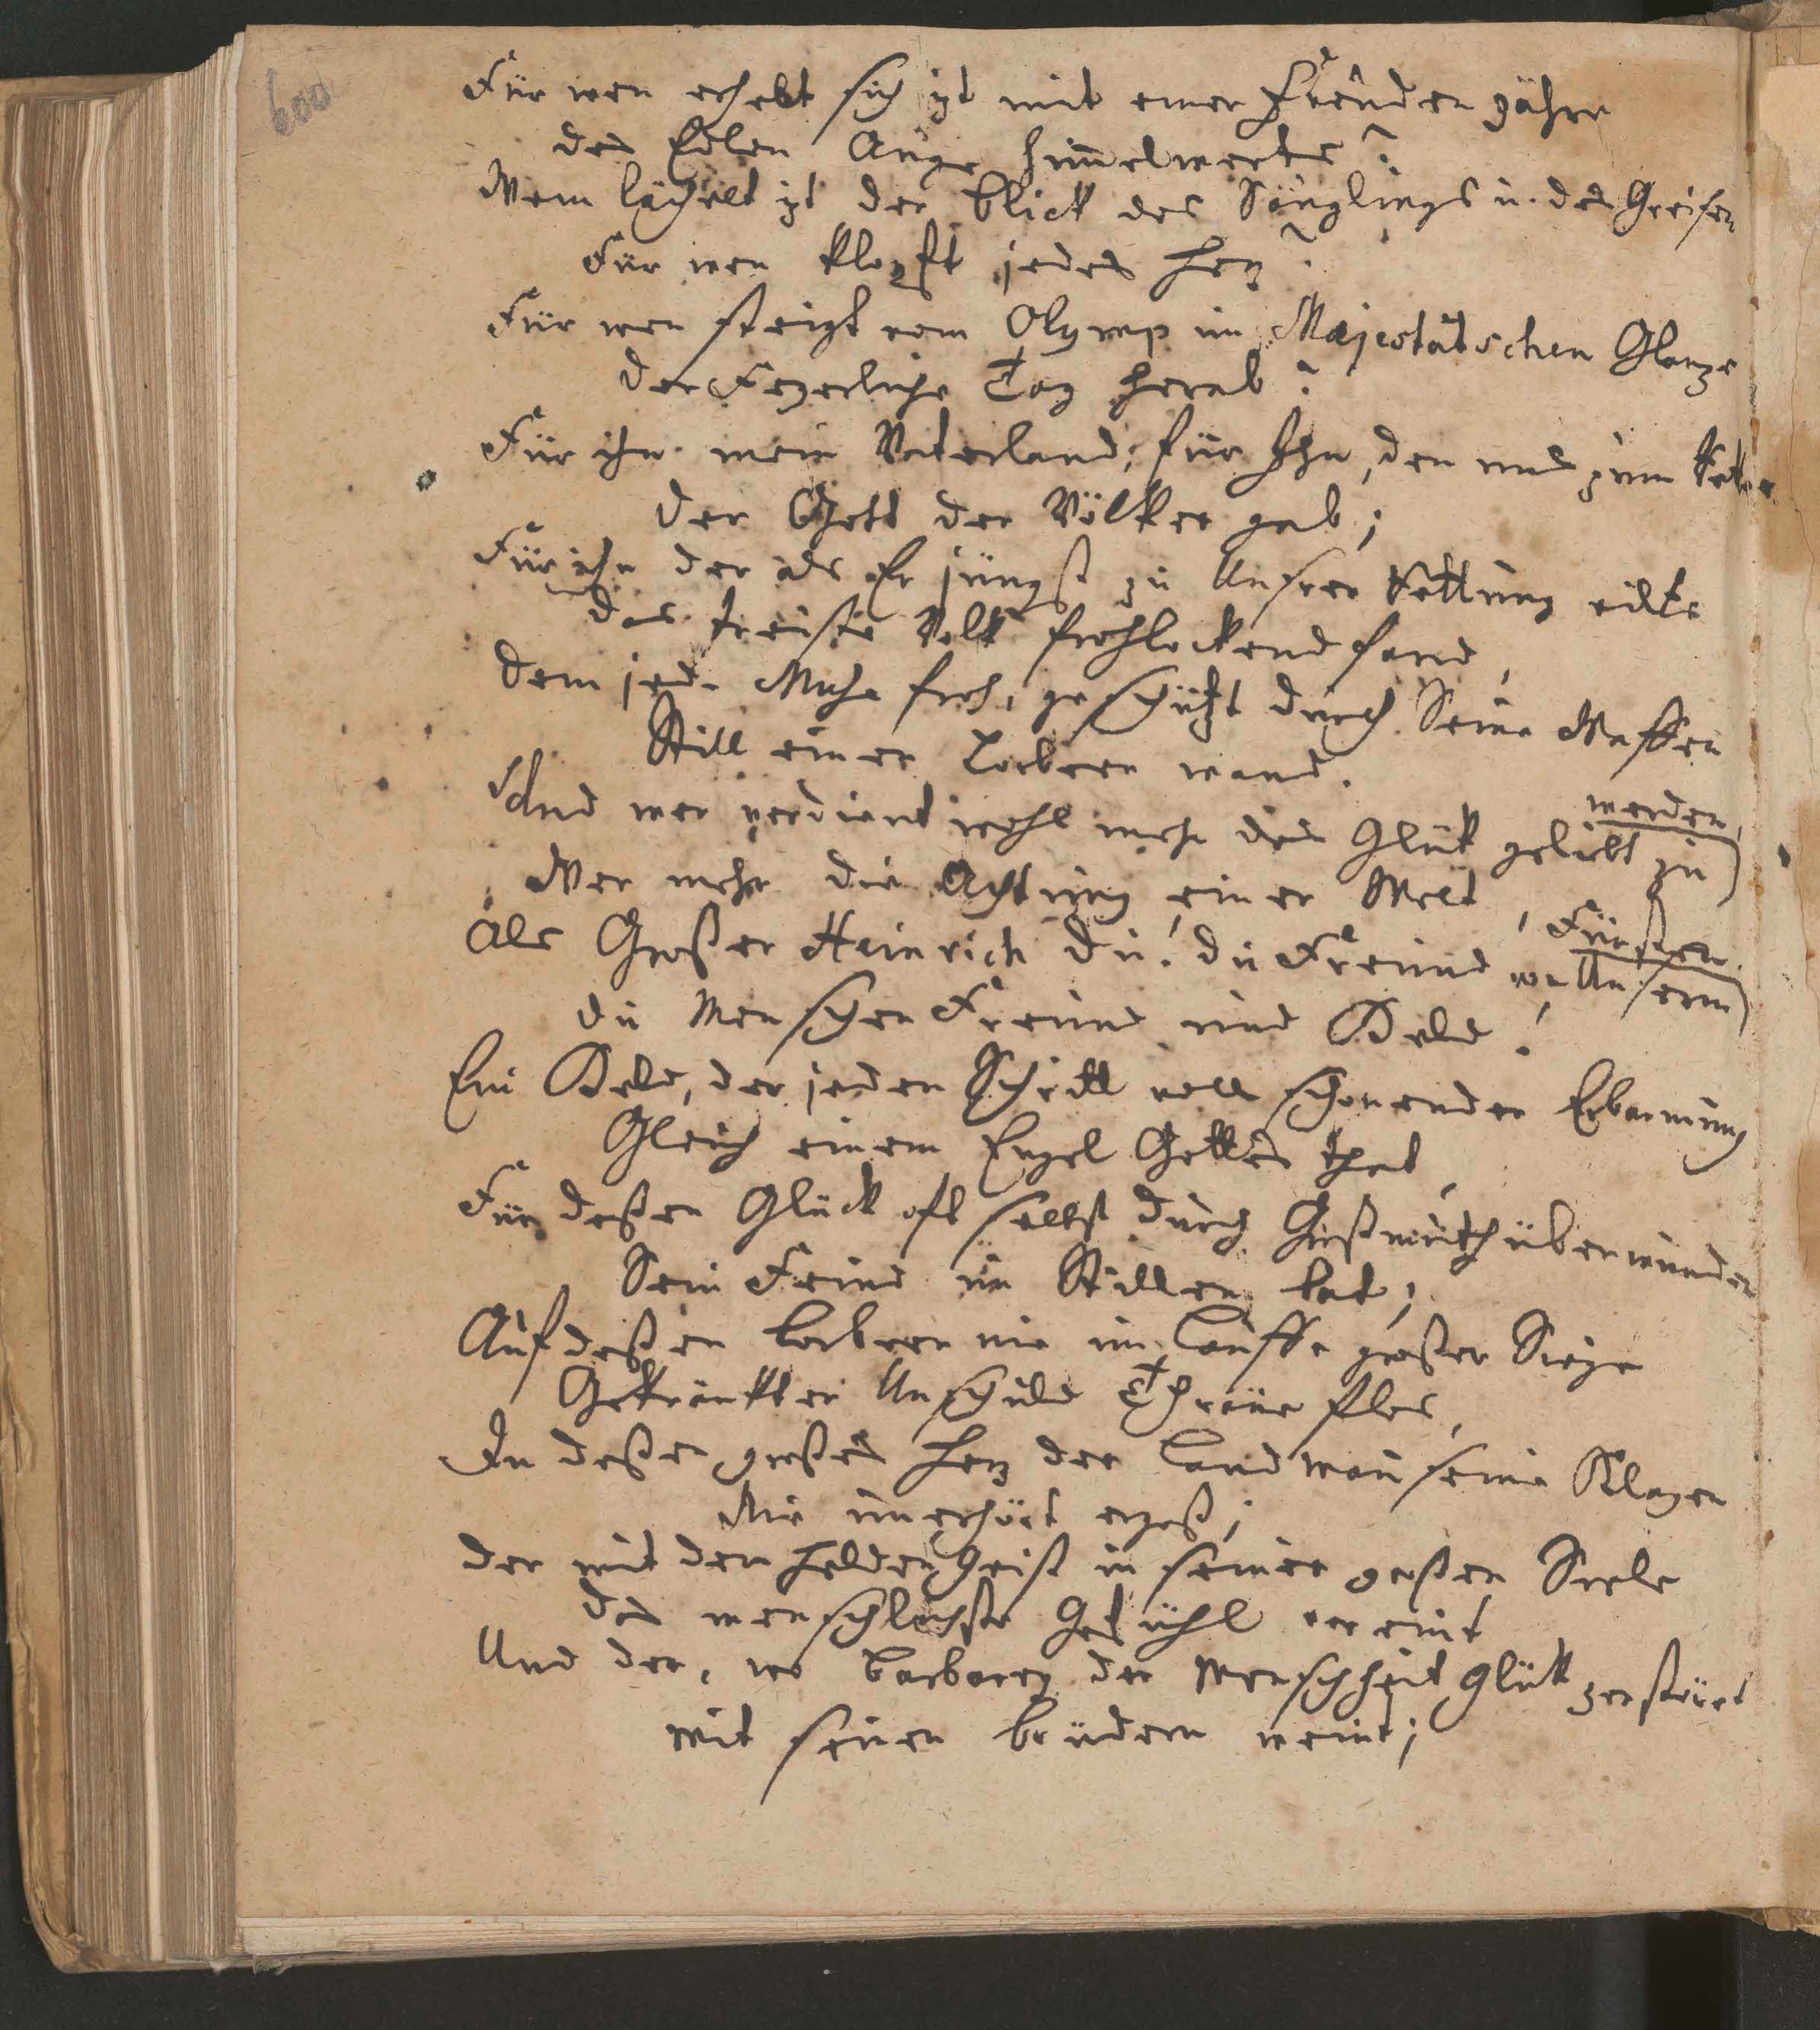 600
Für wen erhebt sich izt mit einer Freuden zähre
des Edlen Auge himmelwerts?
Wem lächelt izt der Blick des Säuglings u. des Greisen
Für wen klopft jedes Herz?
Für wen steigt vom Olymp im Majestätschen Glanze
der Feyerliche Tag herab?
Für ihn mein Vaterland; für Ihn, den uns zum Retter
der Gott der Völker gab;
Für ihn der als Er jüngst zu Unsrer Rettung eilte
das treuste Volk frohlockend fand,
Dem jede Muse froh, geschützt durch Seine Waffen
Still einen Lorbeer wand.
Und wer verdient wohl mehr das Glük geliebt zu
werden,
Wer mehr die Achtung einer Welt,
Als Großer Heinrich du! du Freund von Unserm
Fürsten.
du Menschen Freund und Held!
Ein Held, der jeden Schritt voll schonender Erbarmung
Gleich einem Engel Gottes that,
Für deßen Glück oft selbst durch Großmuth überwunden
Sein Feind im Stillen bat;
Auf deßen Lorbeern nie im Lauffe großer Siege
Gekränkter Unschuld Thräne flos,
In deßen großes Herz der Landman seine Klagen
Nie unerhört ergoß;
Der mit dem Helden Geist in seiner großen Seele
das menschlichste Gefühl vereint
Und der, wo Barbarey der Menschheit Glük zerstört
mit seinen Brüdern weint;